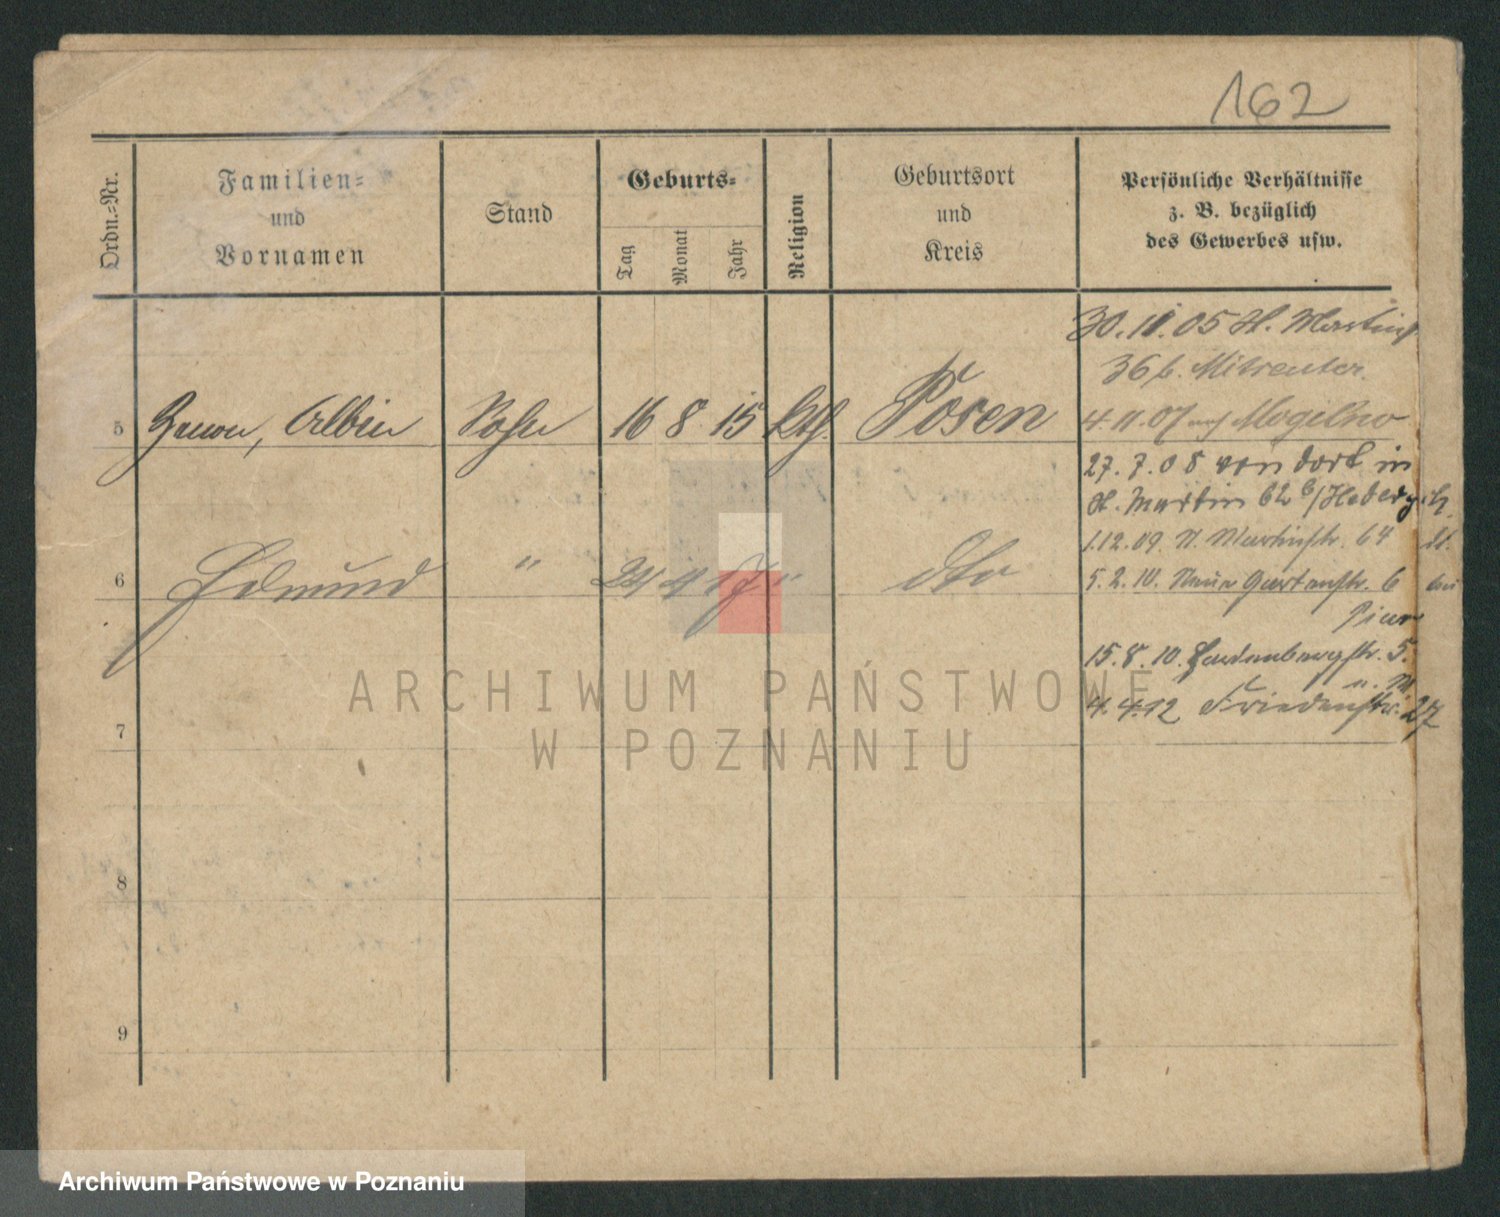 162
Ordn.=Nr.
Familien=
und
Vornamen
Stand
Geburts=
Tag
Monat
Jahr
Religion
Geburtsort
und
Kreis
Persönliche Verhältnisse
z. B. bezüglich
des Gewerbes usw.
30. 11. 05 St. Martinstr.
36 b. Mitreuter.
5 Zenon, Albin Sohn 16 8 15 kth. Posen
4. 11. 07 Mogilno
27. 7. 08 von dort in
St. Martin 62 b/
1.12.09. St. Martinstr. 64
6 Edmund " 24 4 17 " dto
5. 2. 10. Neue Gartenstr. 6 bei
15. 8. 10. Hardenbergstr. 5.
4. 4. 12 Friedenstr. 27
7
8
9
ARCHIWUM PAŃSTWOWE
W POZNANIU
Archiwum Państwowe w Poznaniu